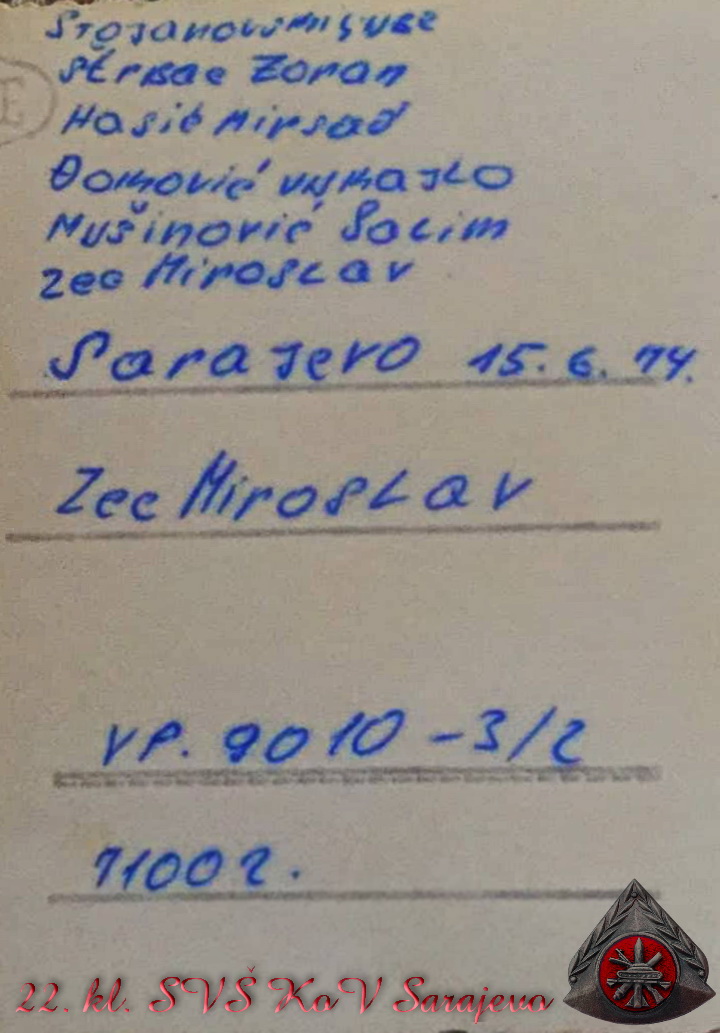 Štrbac Zoran
Hasić Mirsad
Đoković Vukajlo
Mušinović Salim
Zec Miroslav
Sarajevo 15. 6. 74.
Zec Miroslav
VP. 9010 - 3/2
71002.
22. kl. SVŠ KoV Sarajevo